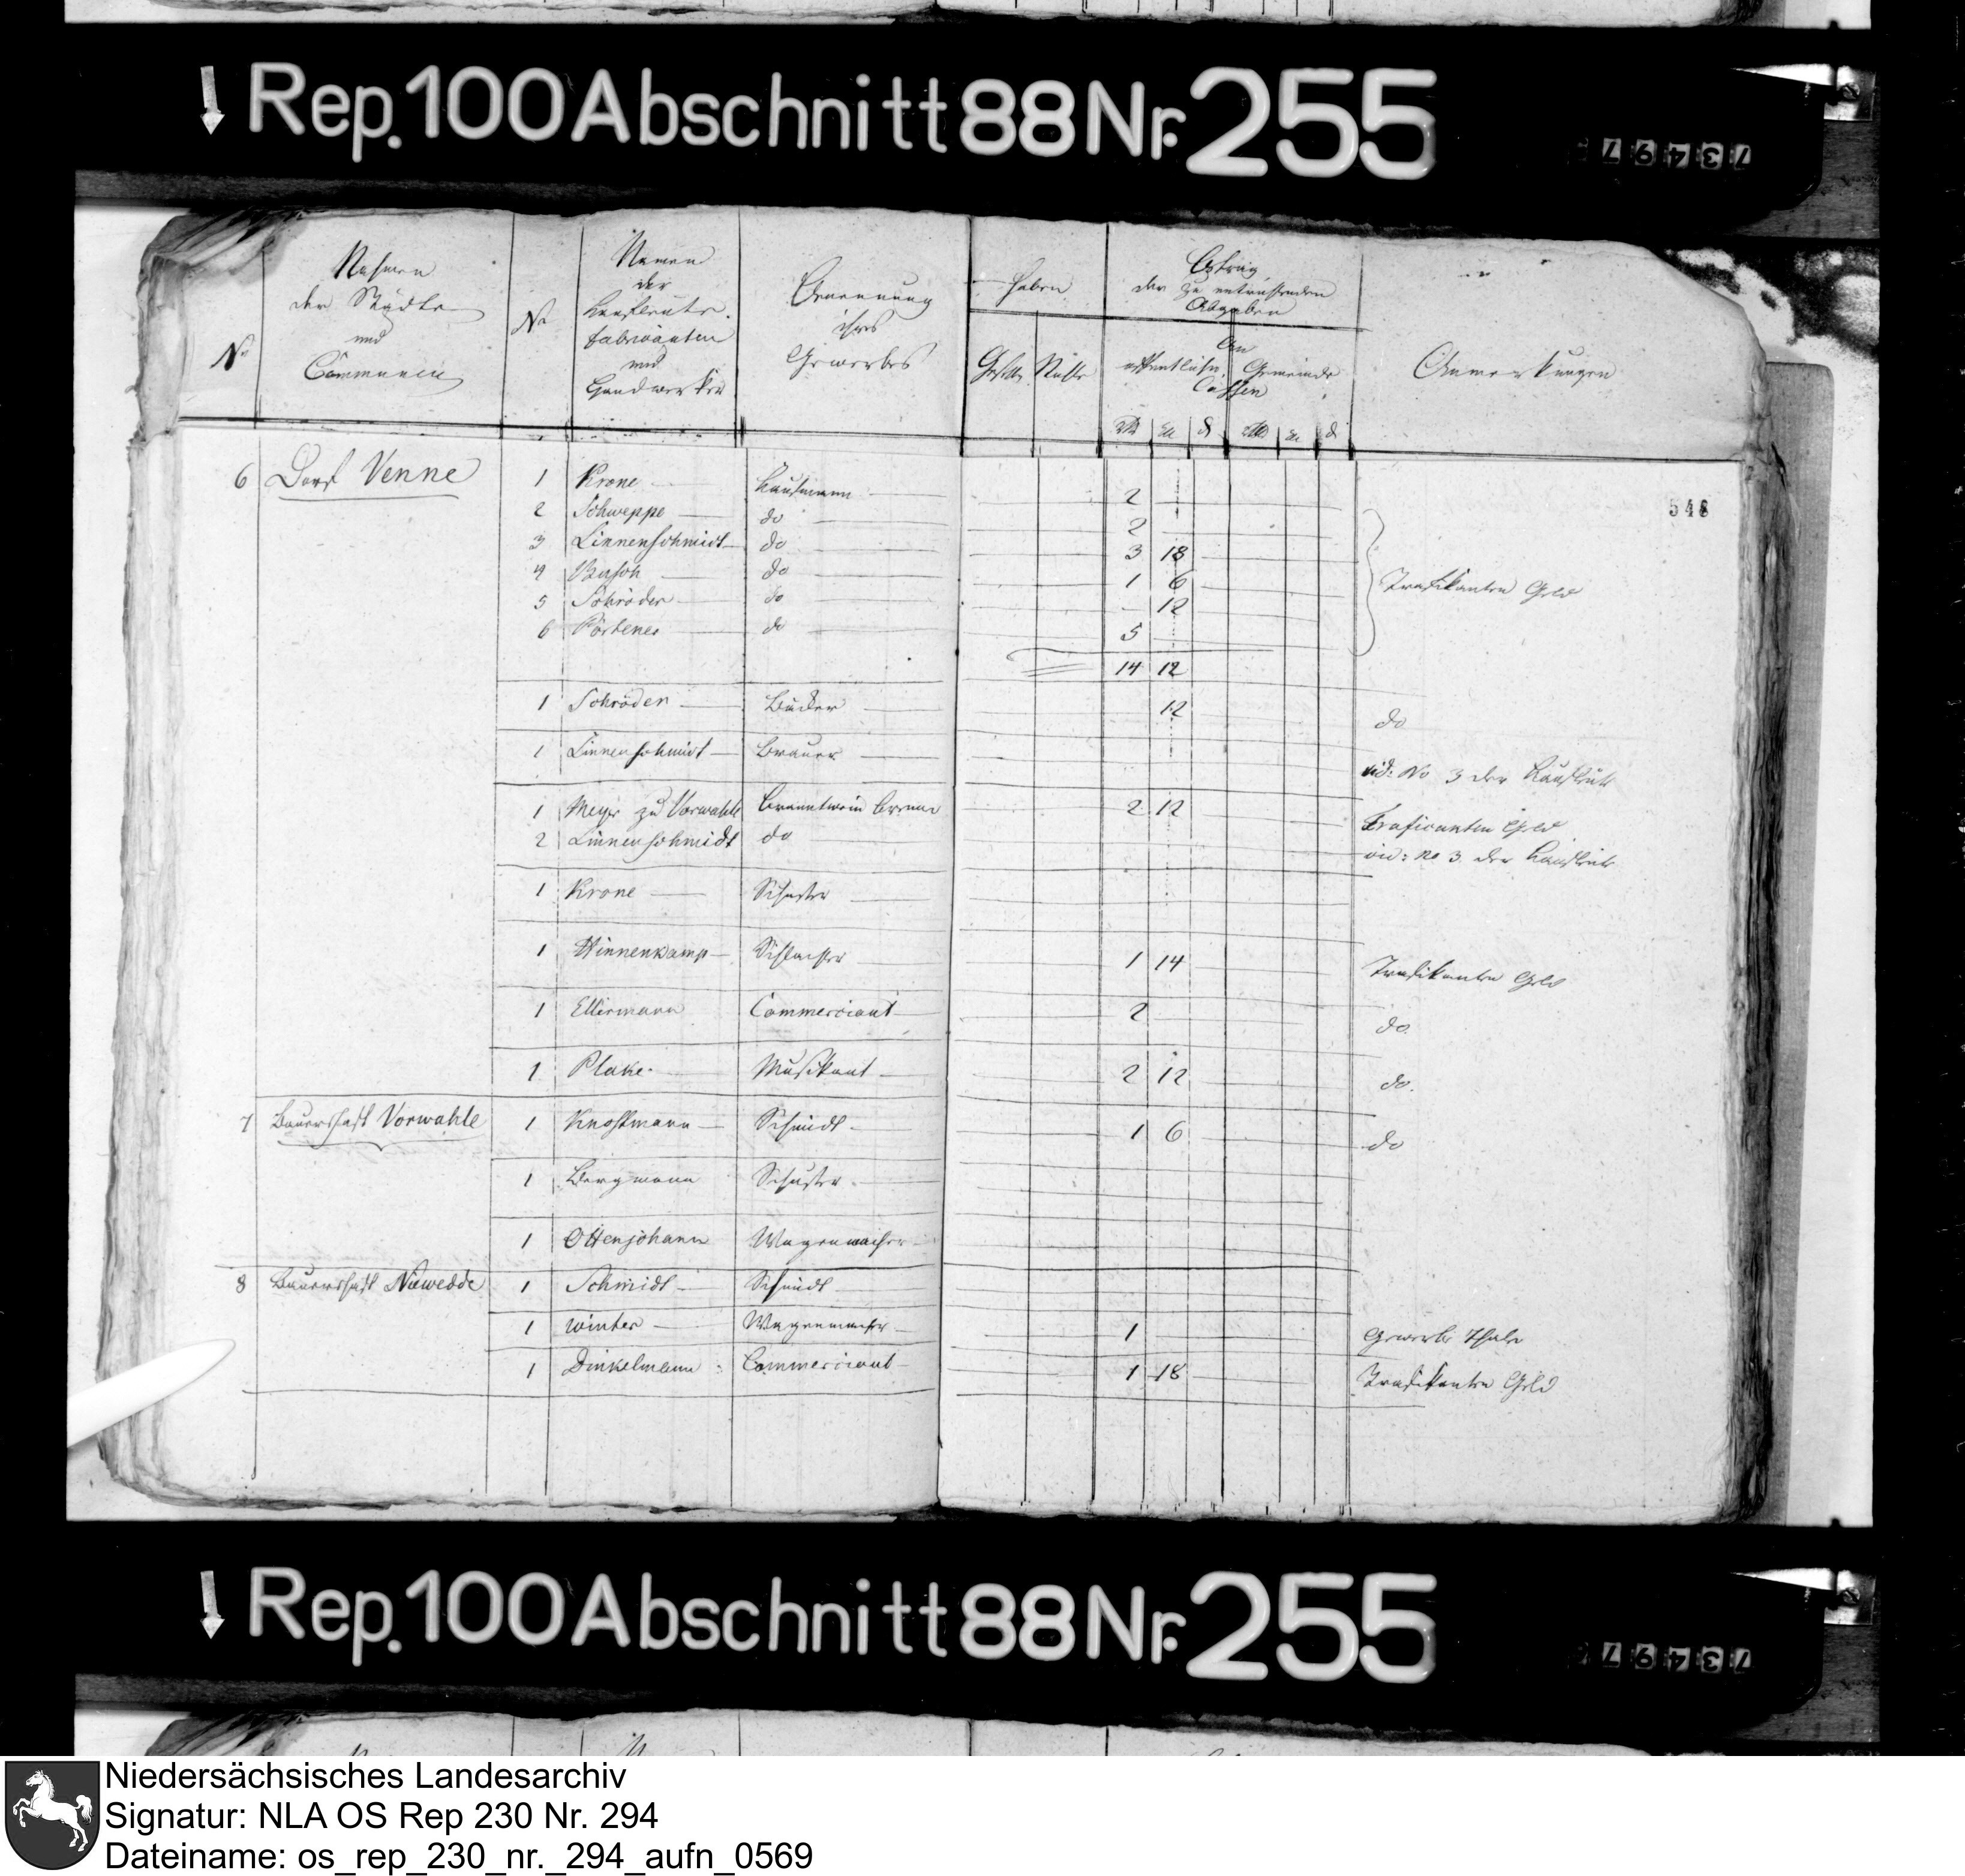 Rep. 100 Abschnitt 88 Nr. 255
73497
No
Nahmen der Städte und Communen
No
Namen der Kaufleute, Fabricanten und Handwerker
Benennung ihres Gewerbes
haben
Gesellen
Betrag der zu entrichtenden Abgaben
An
öffentliche Gemeinde
Cassen
Anmerkungen
548
6 Dorf Venne 1 Krone Kaufmann 2
2 Schweppe do 2
3 Linnenschmidt do 3 18
4 Busch do 1 6 Trafikanten Geld
5 Schröder do - 12
6 do 5
14 12
1 Schröder Bäcker 12 do
1 Linnenschmidt Brauer vid: No 3 der Kaufleute
1 Meyer zu Vorwahle Branntwein Brenner 2 12 Traficanten Geld
2 Linnenschmidt do vid: No 3 der Kaufleute
1 Krone Schuster
1 Winnenkamp Schlachter 1 14 Trafikanten Geld
1 Ellermann Commerciant 2 do.
1 Plake Musikant 2 12 do.
7 Bauerschaft Vorwahle 1 Knostmann Schmidt 1 6 do
1 Bergmann Schuster
1 Ottenjohann Wagenmacher
8 Bauerschaft Niewedde 1 Schmidt Schmidt
1 Winter Wagenmacher 1 Gewerbe Thaler
1 Dinkelmann Commerciant 1 18 Trafikanten Geld
Rep. 100 Abschnitt 88 Nr. 255
73497
Niedersächsisches Landesarchiv
Signatur: NLA OS Rep 230 Nr. 294
Dateiname: os_rep_230_nr._294_aufn_0569